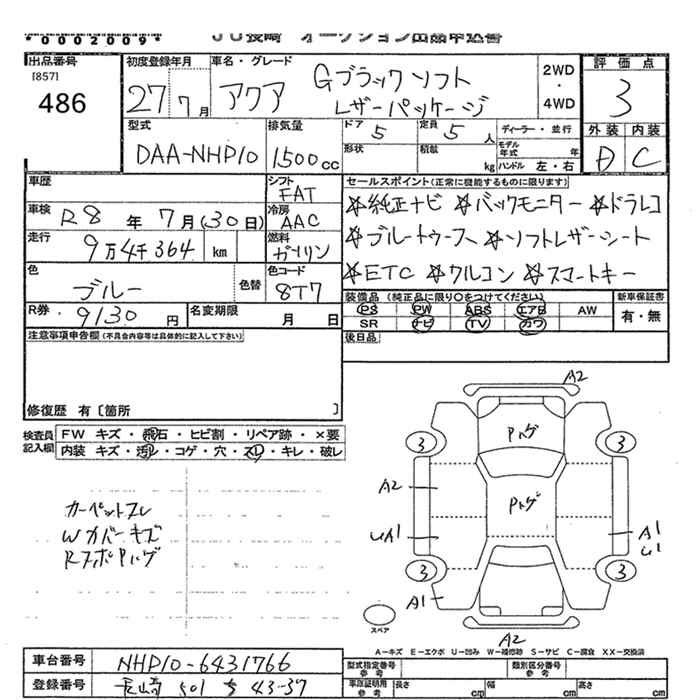 *0002009*
JU長崎 オークション出品申込書
出品番号
[857]
486
初度登録年月
27年7月
車名・グレード
アクア Gブラックソフト
レザーパッケージ
2WD
・
4WD
評価点
3
外装 内装
D C
型式
DAA-NHP10
排気量
1500cc
ドア 5
定員 5人
形状
積載 kg
ディーラー・並行
モデル年式 年
ハンドル 左・右
車歴
シフト
FAT
車検 R8年7月(30日)
冷房
AAC
走行 9万4千364 km
燃料
ガソリン
色
ブルー
色替
色コード
8T7
R券 9130円
名変期限 月 日
セールスポイント(正常に機能するものに限ります)
☆純正ナビ ☆バックモニター ☆ドラレコ
☆ブルートゥース ☆ソフトレザーシート
☆ETC ☆クルコン ☆スマートキー
装備品(純正品に限り○をつけてください)
PS PW ABS エアB AW
SR ナビ TV カワ
新車保証書
有・無
後日品
注意事項申告欄(不具合内容等は具体的に記入して下さい)
修復歴 有〔箇所 〕
検査員記入欄
FW キズ・飛石・ヒビ割・リペア跡・×要
内装 キズ・汚レ・コゲ・穴・スレ・キレ・破レ
カーペットスレ
Wカバーキズ
RスポPハゲ
A2
Pハゲ
3 3
A2
Pハゲ
UA1
A1
U1
3 3
A1
スペア
A2
A-キズ E-エクボ U-凹み W-補修跡 S-サビ C-腐食 XX-交換済
車台番号 NHP10-6431766
登録番号 長崎 501 ち 43-37
型式指定番号 参考
類別区分番号 参考
車庫証明用 参考
長さ cm
幅 cm
高さ cm